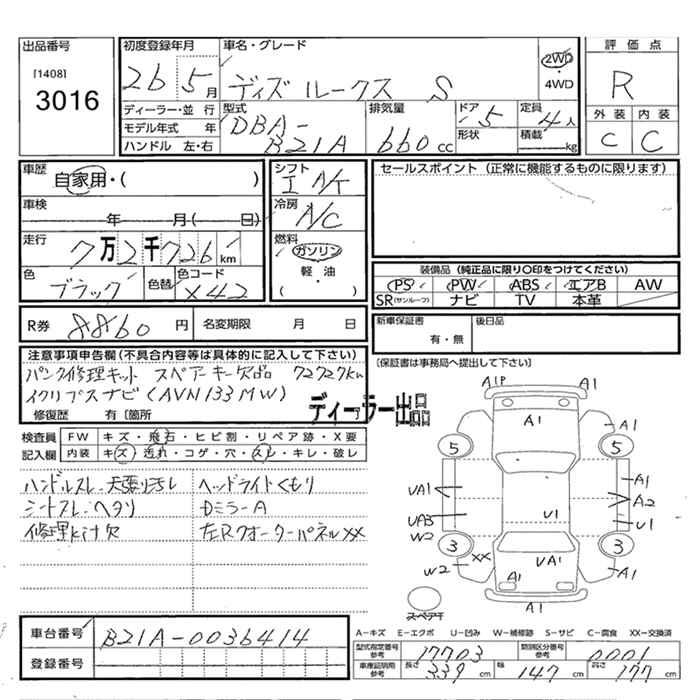 出品番号
[1408]
3016
初度登録年月
26 5月
車名・グレード
ディズ ルークス S
2WD
・
4WD
評価点
R
外装 内装
C C
ディーラー・並行
モデル年式 年
ハンドル 左・右
型式
DBA-
B21A
排気量
660 cc
ドア 5
形状
定員 4人
積載 kg
車歴
自家用・( )
車検
年 月 ( 日)
走行
7万2千726 km
色
ブラック
色替
色コード
X42
シフト
I A/T
冷房
A/C
燃料
ガソリン
・
軽・油
( )
セールスポイント (正常に機能するものに限ります)
装備品 (純正品に限り○印をつけてください)
PS PW ABS エアB AW
SR(サンルーフ) ナビ TV 本革
R券 8860円 名変期限 月 日
新車保証書
有・無
後日品
[保証書は事務局へ提出して下さい]
注意事項申告欄(不具合内容等は具体的に記入して下さい)
パンク修理キット スペアーキー欠品 72727km
イクリプスナビ (AVN133MW)
修復歴 有 〔箇所
ディーラー出品
検査員
記入欄
FW キズ・飛石・ヒビ割・リペア跡・X要
内装 キズ・汚れ・コゲ・穴・スレ・キレ・破レ
ハンドルスレ 天張り汚レ
ヘッドライトくもり
シートスレ・ヘタリ
DミラーA
修理kit欠
左RクォーターパネルXX
A1P A1
A1 A1
5 5
UA1 A1
A2
UA3 U1 U1
W2
3 3
XX UA1
W2 A1 A1
A1
スペアT
車台番号 B21A-0036414
登録番号
A-キズ E-エクボ U-凹み W-補修跡 S-サビ C-腐食 XX-交換済
型式指定番号
参考
17703
類別区分番号
参考
0001
車庫証明用
参考
長さ 339 cm 幅 147 cm 高さ 177 cm